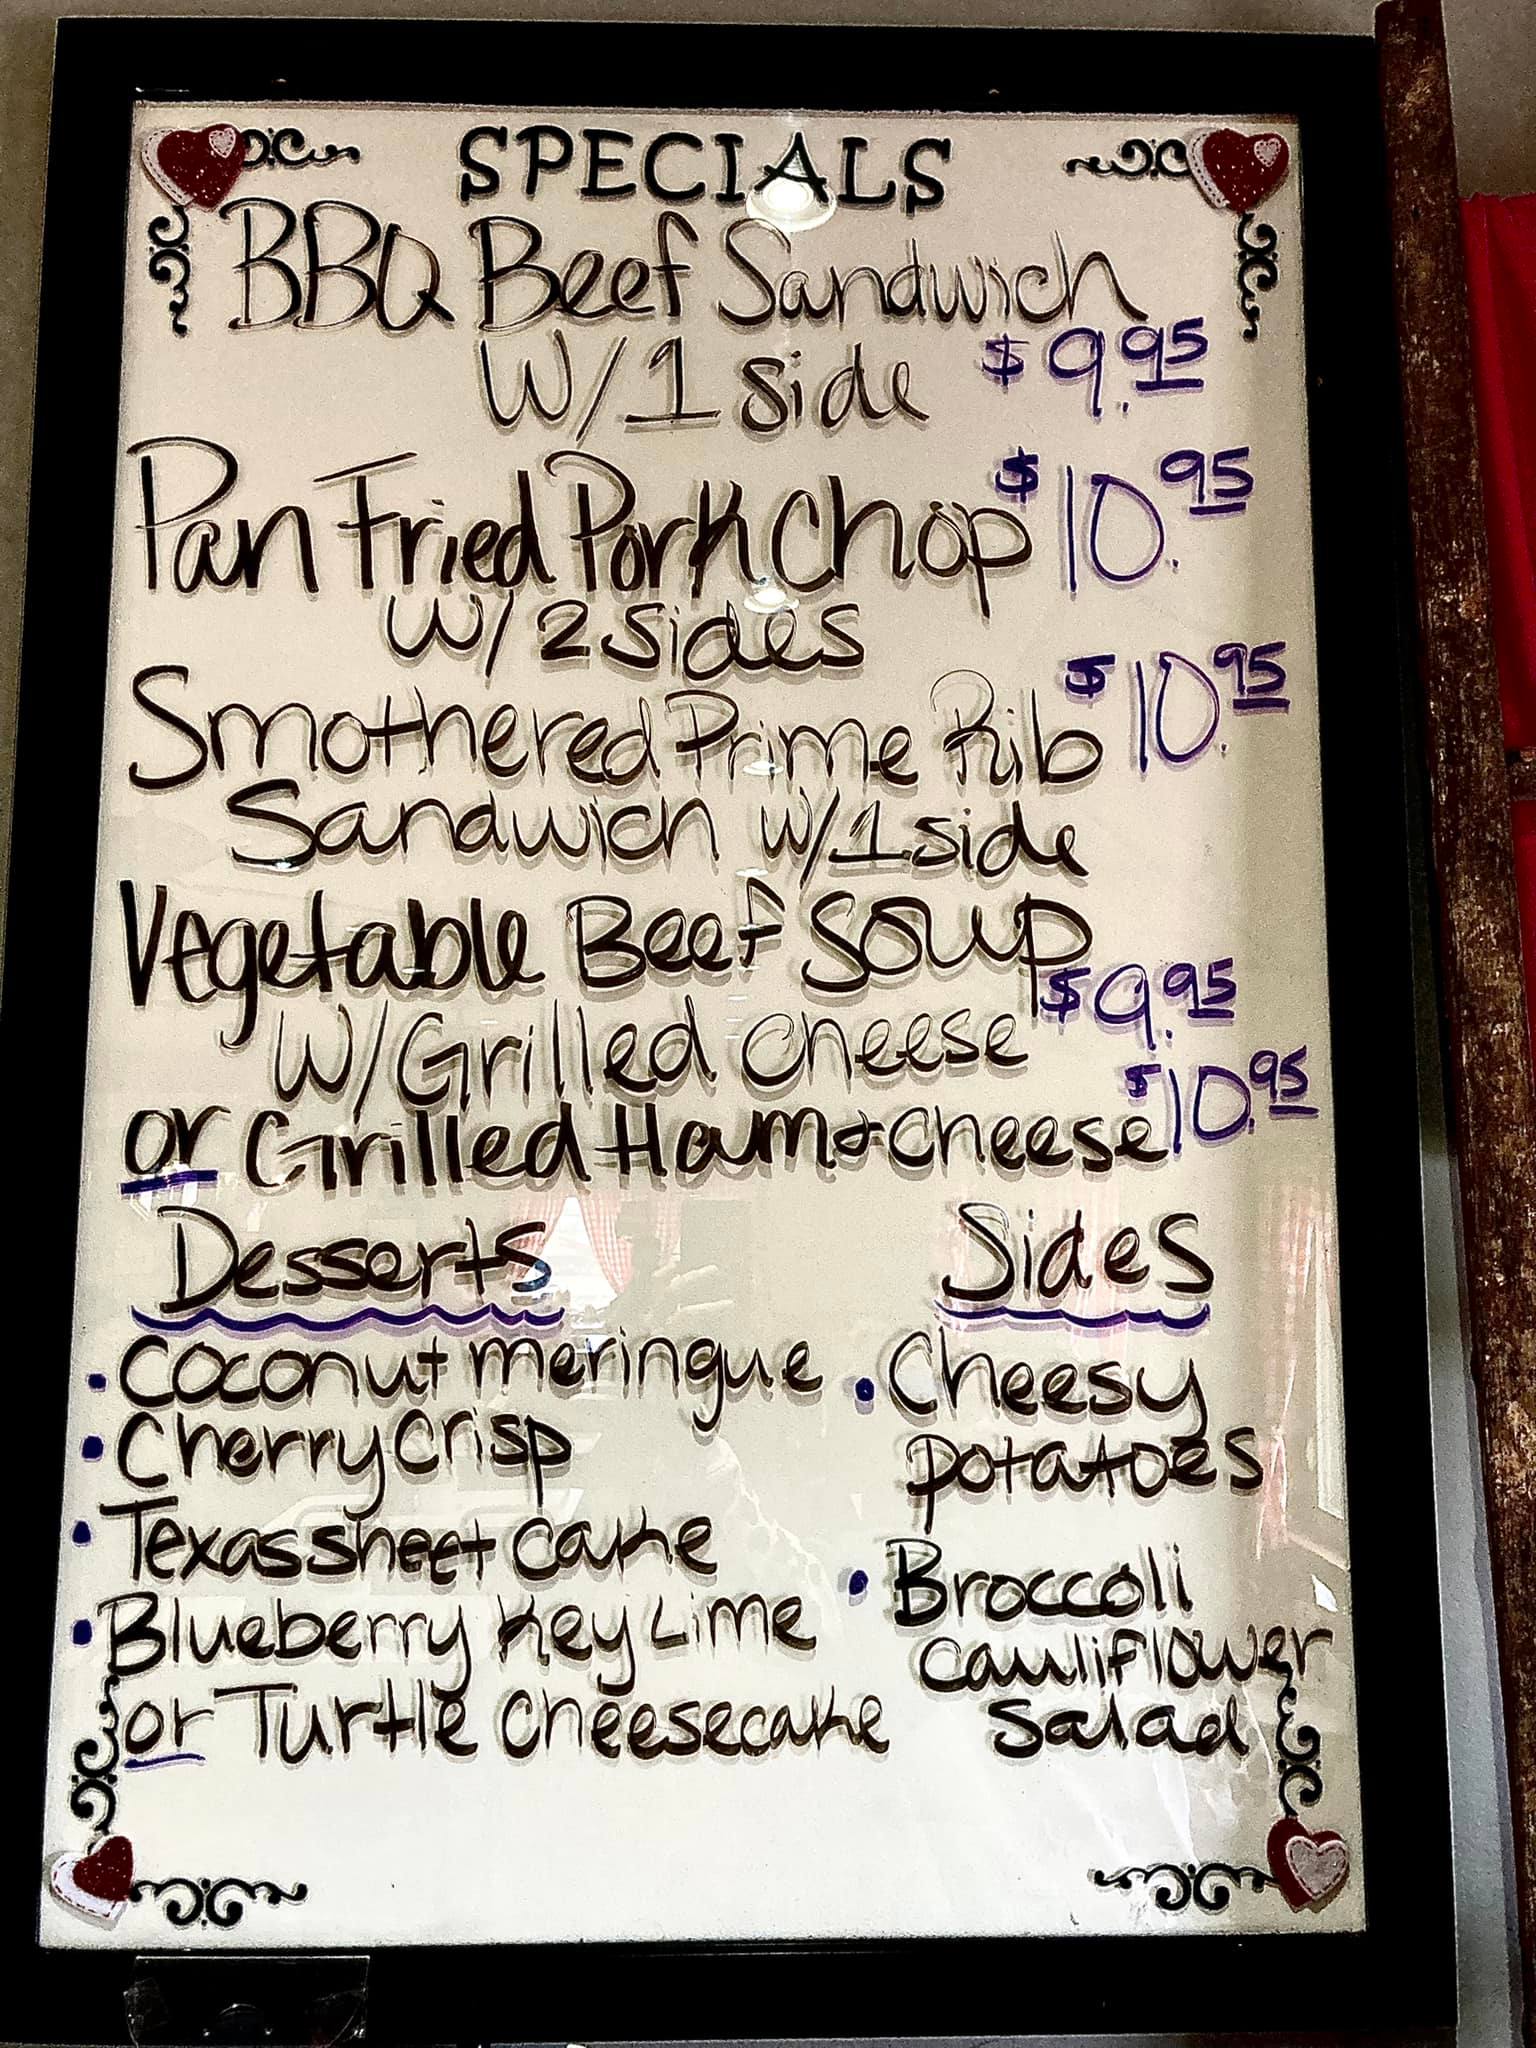 SPECIALS
BBQ Beef Sandwich
W/1 side $9.95
Pan Fried Pork Chop $10.95
W/ 2 sides
Smothered Prime Rib $10.95
Sandwich w/1 side
Vegetable Beef Soup
W/Grilled cheese $9.95
or Grilled Ham & cheese $10.95
Desserts
• Coconut meringue
• Cherry crisp
• Texas sheet cake
• Blueberry Key Lime
or Turtle cheesecake
Sides
• Cheesy
potatoes
• Broccoli
cauliflower
salad